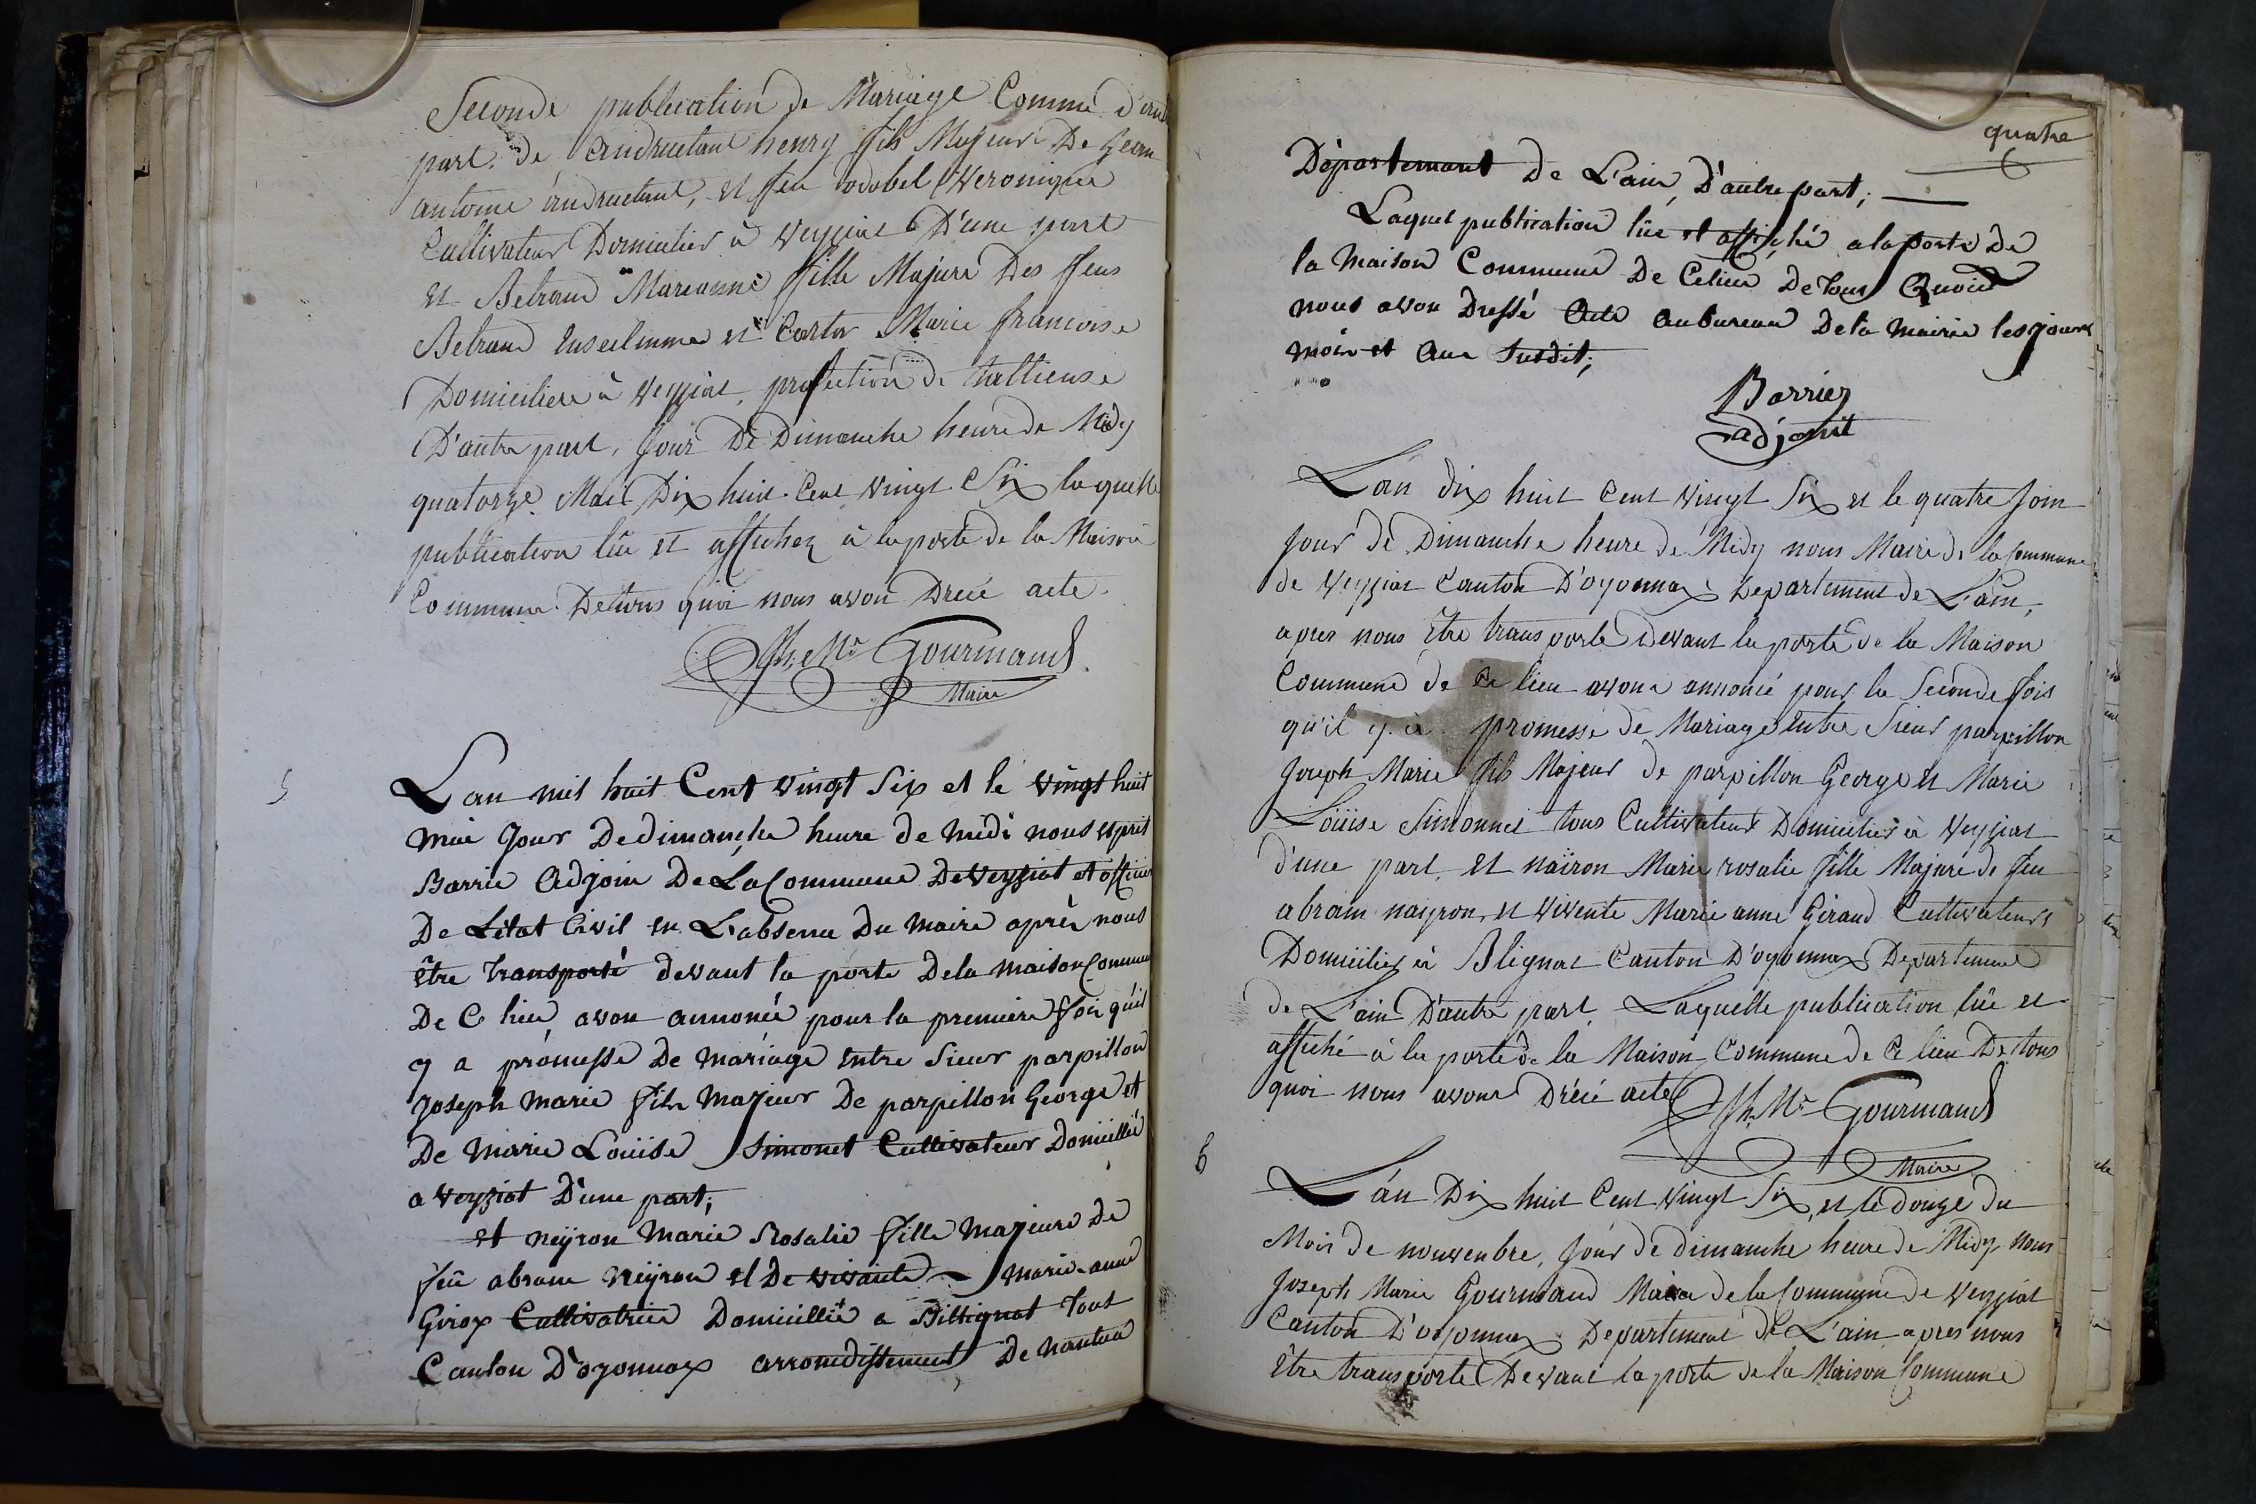 Seconde publication de Mariage Comme d'une
part, de Andruetant henry fils Majeur De Jean
antoine andruetant, et feu Veronique
Cultivateur Domicilier à Veyziat D'une part
et Betrand Marianne fille Majure Des feus
Betrand et Cartor Marie francoise
Domiciliere à Veyziat, profection de taillieuse
D'autre part, Jour De Dimanche heure de Midy
quatorze Mais Dix huit Cent Vingt Six laquelle
publication lüe et affichez à la porte de la Maison
Commune. De tous quoi nous avon Drécé acte.
Jh. Mie Gourmand
Maire
5
Lan mil huit Cent vingt Six et le vingt huit
mai Jour De dimanche heure de midi nous esprit
Barrie Adjoin De La Commune De Veyziat et officier
De Létat Civil en L'absence Du maire après nous
être transporté devant la porte Dela maison Commune
De Ce lieu avon annoncé pour la première foi qu'il
y a promesse De mariage entre Sieur parpillon
Joseph marie fils majeur De parpillon George et
De marie Louïse Simonet Cultivateur Domicillié
a Veyziat D'une part;
et neÿron marie Rosalie fille majeure De
feu abram neÿron et De vivante marie-anne
Girox Cultivatrice Domicillié a Bellignat tous
Canton D'oyonnax arrondissement De nantua
quatre
Département De L'ain, D'autre part;
Laquel publication lüe et affiché a la porte De
la Maison Commune De Celieu De tous Quoi
nous avon Dressé Acte au bureau Dela mairie les jours
mois et an Susdit;
Barrier
adjoint
Lán dix huit Cent Vingt Six et le quatre Join
Jour de Dimanche heure de Midy nous Maire de la Commune
de Veyziat Canton D'oyonnax Departement de L'ain,
apres nous être transporté Devant la porte de la Maison
Commune de Ce lieu avons annoncé pour la Seconde fois
qu'il y à promesse de Mariage Entre Sieur parpillon
Joseph Marie fils Majeur de parpillon George et Marie
Loüise Simonnet tous Cultivateur Domicilier à Veyziat
d'une part, et naïron Marie rosalie fille Majure de feu
abram nayron, et Vivente Marie anne Giraud Cultivateurs
Domicilier à Blignat Canton D'oyonnax Departement
de L'ain D'autre part Laquelle publication lüe et
affiché à la porte de la Maison Commune de Ce lieu De tous
quoi nous avons Drécé acte Jh. Mie Gourmand
Maire
6
Lán Dix huit Cent Vingt Six, et le douze du
Mois de nouvenbre, Jour de dimanche heure de Midy nous
Joseph Marie Gourmand Maire de la Commune de Veyziat
Canton D'oyonnax Departement de L'ain apres nous
être transporté Devant la porte de la Maison Commune